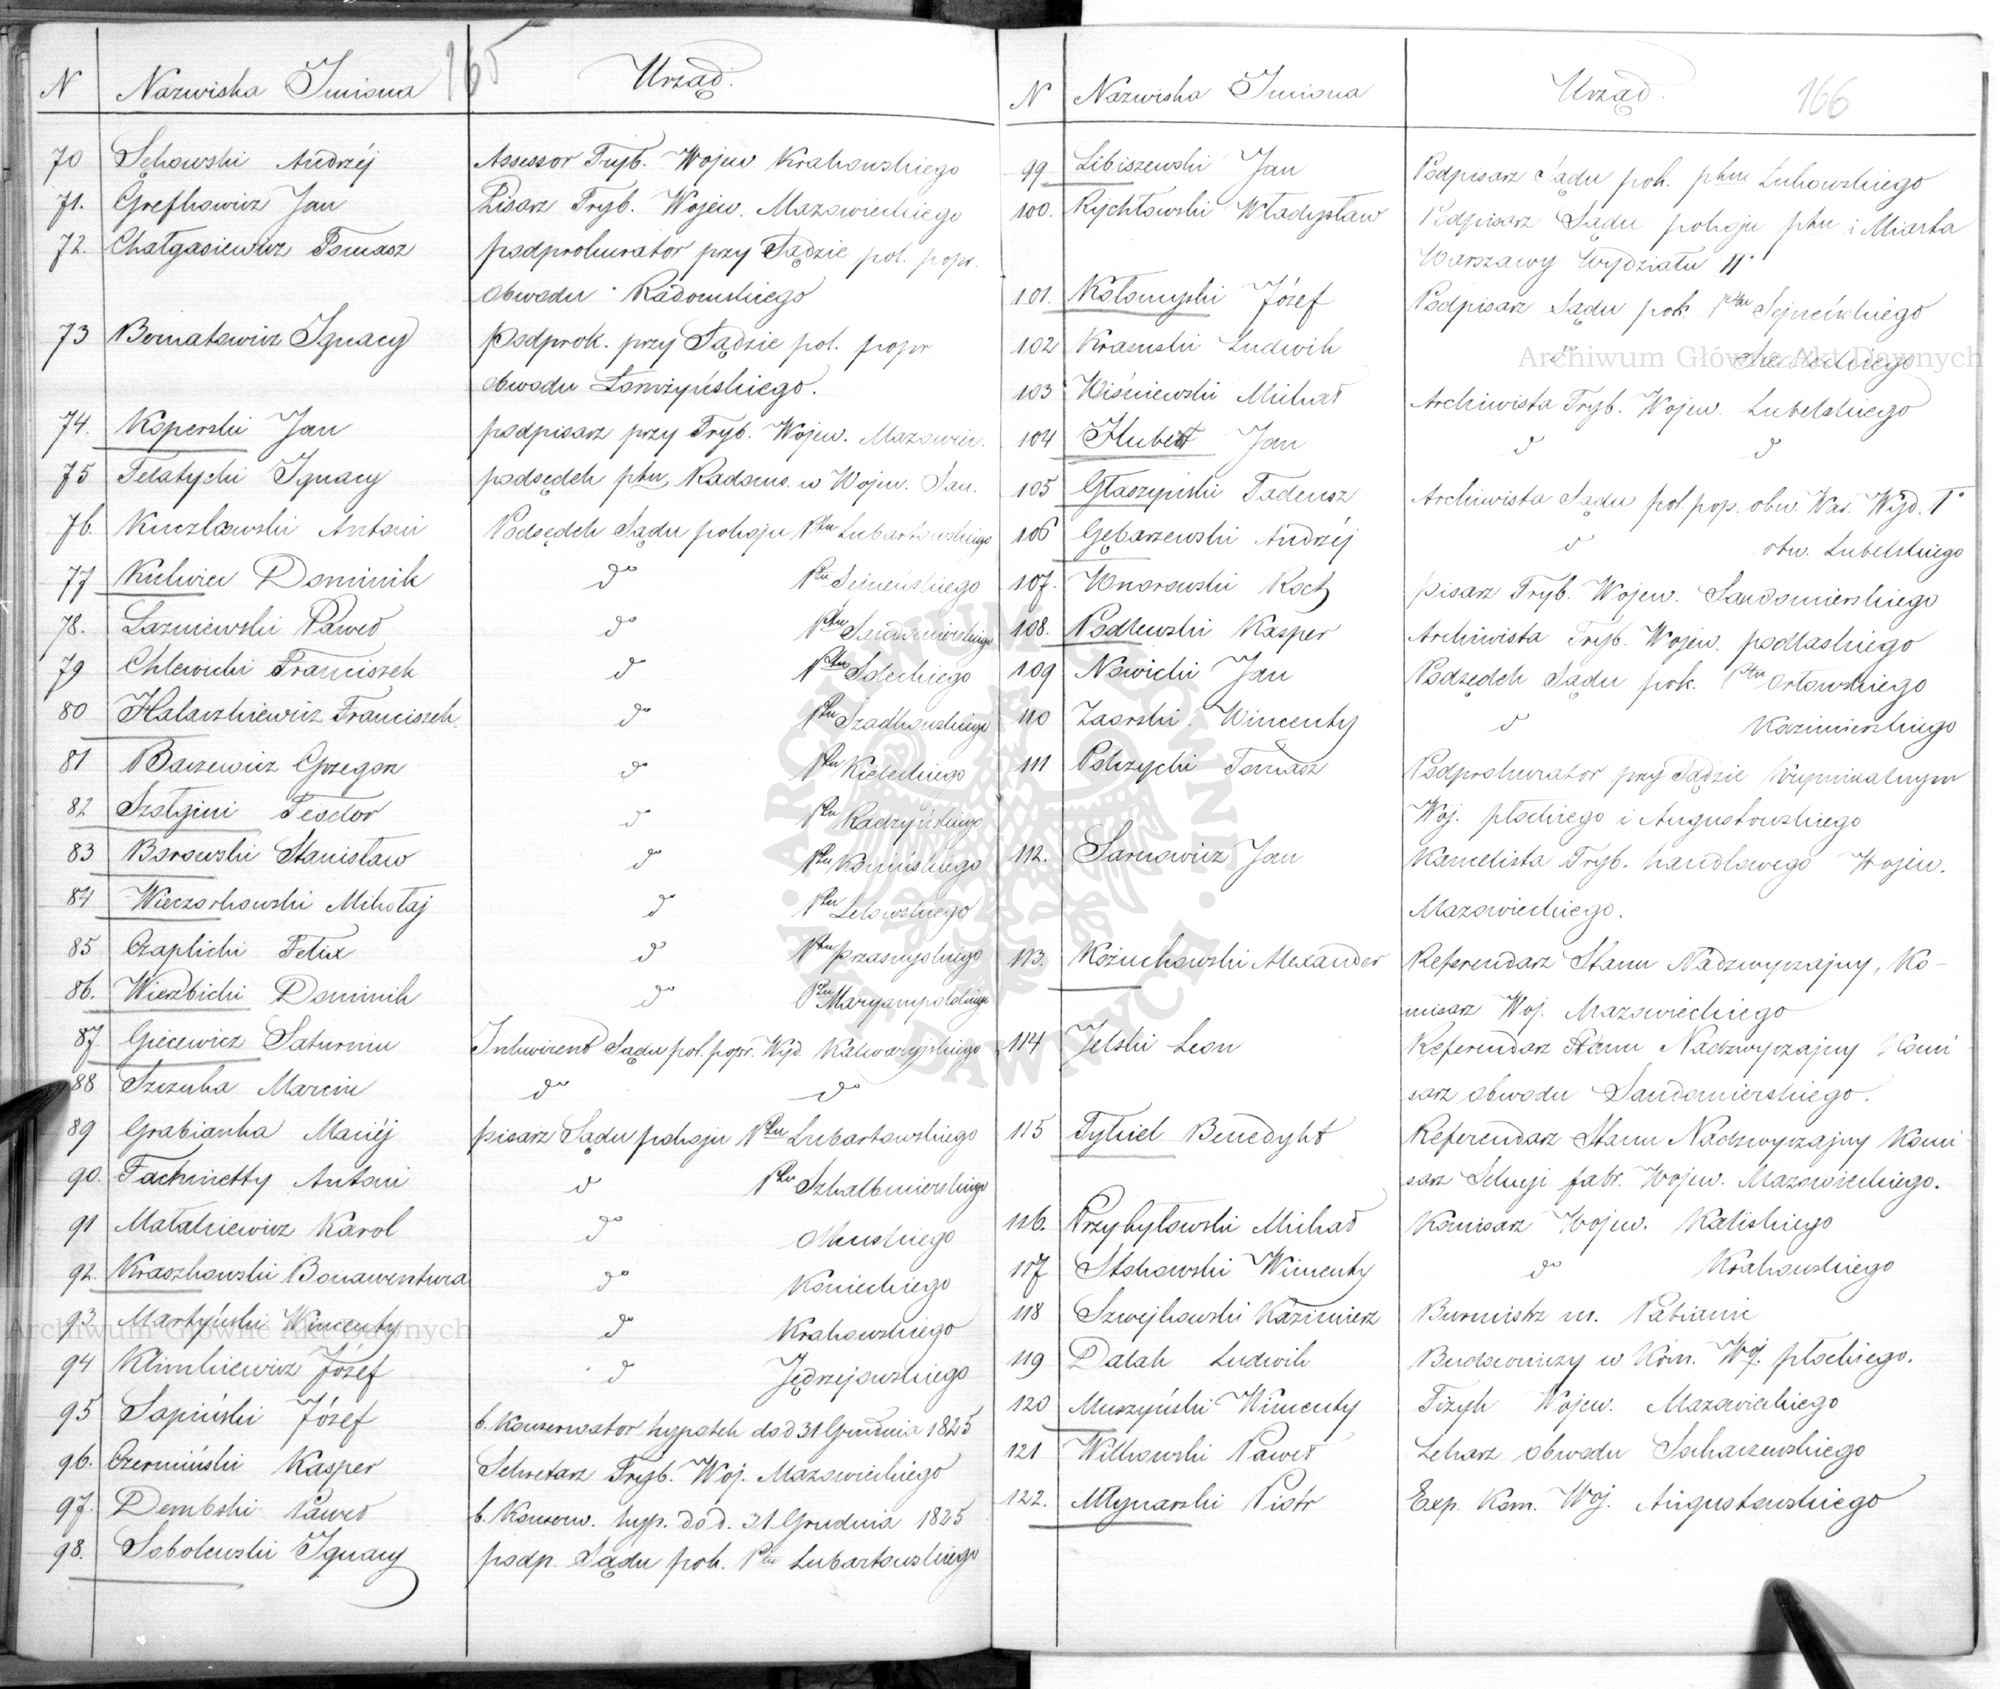 165
N Nazwiska Imiona Urząd.
70 Sękowski Andrzéj Assessor Tryb. Wojew Krakowskiego
71. Grefkowicz Jan Pisarz Tryb. Wojew. Mazowieckiego
72. Chałgasiewicz Tomasz podprokurator przy Sądzie pol. popr.
obwodu Radomskiego
73 Bernatowicz Ignacy Podprok. przy Sądzie pol. popr
obwodu Łomżyńskiego.
74. Koperski Jan podpisarz przy Tryb. Wojew. Mazowiec.
75 Telatycki Ignacy podsędek ptu Radoms. w Wojew. San.
76. Kuczkowski Antoni Podsędek Sądu pokoju Ptu Lubartowskiego
77 Kulwiec Dominik do Ptu Sejneńskiego
78. Lazniewski Paweł do Ptu Sandomierskiego
79 Chlewicki Franciszek do Ptu Soleckiego
80 Halaczkiewicz Franciszek do Ptu Szadkowskiego
81 Baczewicz Grzegorz do Ptu Kieleckiego
82 Szołgini Teodor do Ptu Radzyńskiego
83 Borowski Stanisław do Ptu Konińskiego
84 Wieczorkowski Mikołaj do Ptu Lelowskiego
85 Czaplicki Felix do Ptu Przasnyskiego
86. Wierzbicki Dominik do Ptu Maryampolskiego
87. Giecewicz Saturnin Inkwirent Sądu pol. popr. Wyd. Kalwaryjskiego
88 Szczuka Marcin do do
89 Grabianka Maciéj pisarz Sądu pokoju Ptu Lubartowskiego
90. Fachinetty Antoni do Ptu Szkalbmierskiego
91 Małakiewicz Karol do Olkuskiego
92. Kraszkowski Bonawentura do Konieckiego
93. Martyński Wincenty do Krakowskiego
94 Klimkiewicz Józef do Jędrzejowskiego
95 Sapiński Józef b. Konserwator hypotek do d 31 Grudnia 1825
96. Czermiński Kasper Sekretarz Tryb. Woj. Mazowieckiego
97. Dembski Paweł b. Konserw. hyp. do d. 31 Grudnia 1825
98. Sobolewski Ignacy podp. Sądu pok. Ptu Lubartowskiego
166
N Nazwiska Imiona Urząd.
99 Libiszewski Jan Podpisarz Sądu pok. ptu Łukowskiego
100. Rychłowski Władysław Podpisarz Sądu pokoju ptu i Miasta
Warszawy Wydziału IIo
101. Kołomyski Józef Podpisarz Sądu pok. Ptu Sejneńskiego
102 Krasuski Ludwik do Siedleckiego
103 Wiśniewski Michał Archiwista Tryb. Wojew. Lubelskiego
104 Hubert Jan do do
105 Głaszyński Tadeusz Archiwista Sądu pol. pop. obw. War. Wyd. Io
106 Gębarzewski Andrzéj do obw. Lubelskiego
107. Wnorowski Roch pisarz Tryb. Wojew. Sandomierskiego
108. Podlewski Kasper Archiwista Tryb. Wojew. podlaskiego
109 Nowicki Jan Podsędek Sądu pok. Ptu Orłowskiego
110 Zaorski Wincenty do Kazimierskiego
111 Polczycki Tomasz Podprokurator przy Sądzie Kryminalnym
Woj. płockiego i Augustowskiego
112. Sarnowicz Jan Kancelista Tryb. handlowego Wojew.
Mazowieckiego.
113. Kożuchowski Alexander Referendarz Stanu Nadzwyczajny, Ko-
misarz Woj. Mazowieckiego
114 Jelski Leon Referendarz Stanu Nadzwyczajny Komi
sarz obwodu Sandomierskiego.
115 Tykiel Benedykt Referendarz Stanu Nadzwyczajny Komi
sarz Sekcyi fabr. Wojew. Mazowieckiego.
116. Przybyłowski Michał Komisarz Wojew. Kaliskiego
117 Stokowski Wincenty do Krakowskiego
118 Szwejkowski Kazimierz Burmistrz m. Pabianic
119 Dalak Ludwik Budowniczy w Kom. Woj. płockiego.
120 Muszyński Wincenty Fizyk Wojew. Mazowieckiego
121 Wilkowski Paweł Lekarz obwodu Sochaczewskiego
122. Młynarski Piotr Exp. Kom. Woj. Augustowskiego
Archiwum Główne Akt Dawnych
Archiwum Główne Akt Dawnych
ARCHIWUM GŁÓWNE AKT DAWNYCH